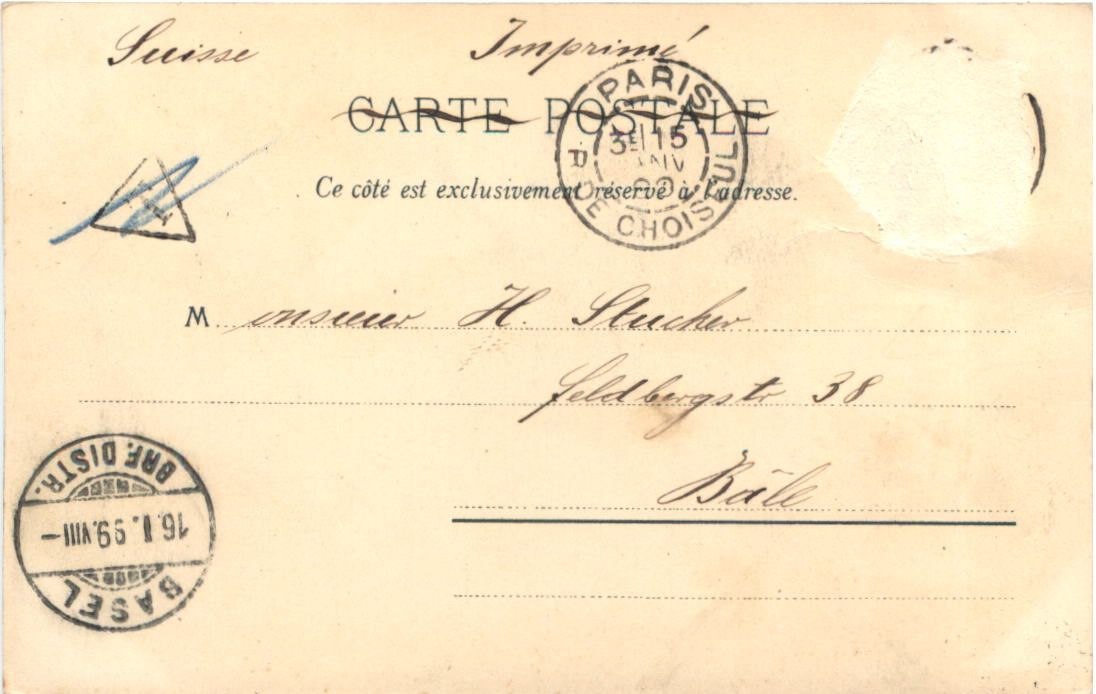 Suisse Imprimé
CARTE POSTALE
PARIS
3E 15
JANV
99
R. DE CHOISEUL
Ce côté est exclusivement réservé à l'adresse.
T
Monsieur H. Stucker
Feldbergstr 38
Bâle
BASEL
16. I. 99. VIII –
BRF. DISTR.